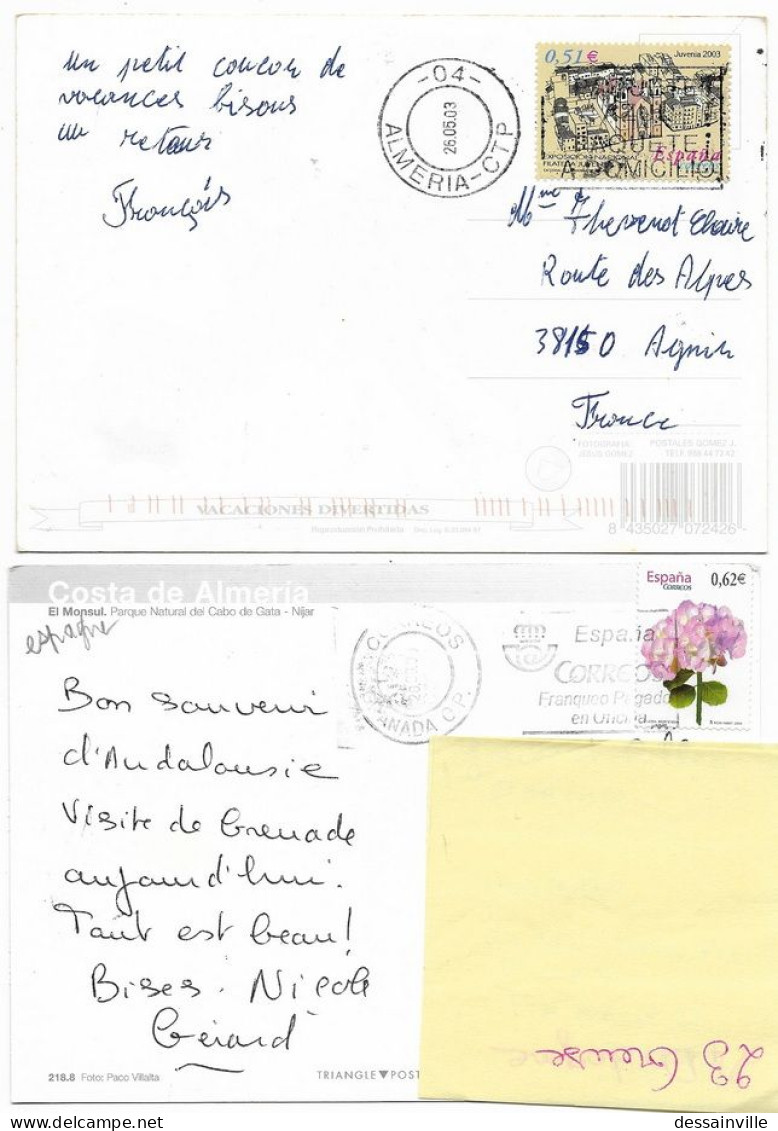 un petit coucou de
vacances bisous
au retour
François
-04-
26.05.03
ALMERIA-CTP
0,51 €
Juvenia 2003
PAQUETE
A DOMICILIO
EXPOSICIÓN NACIONAL
España
Mme Thevenot Claire
Route des Alpes
38150 Agnin
France
FOTOGRAFIA
JESUS GOMEZ
POSTALES GOMEZ J.
VACACIONES DIVERTIDAS
Reproducción Prohibida
8 435027 072426
Costa de Almería
El Monsul. Parque Natural del Cabo de Gata - Níjar
espagne
CORREOS
España
CORREOS
Franqueo Pagado
en Oficina
España
CORREOS
0,62€
Bon souvenir
d'Andalousie
Visite de Grenade
aujourd'hui.
Tout est beau!
Bises. Nicole
Gérard
218.8 Foto: Paco Villalta
TRIANGLE▼POST
23 Creuse
dessainville